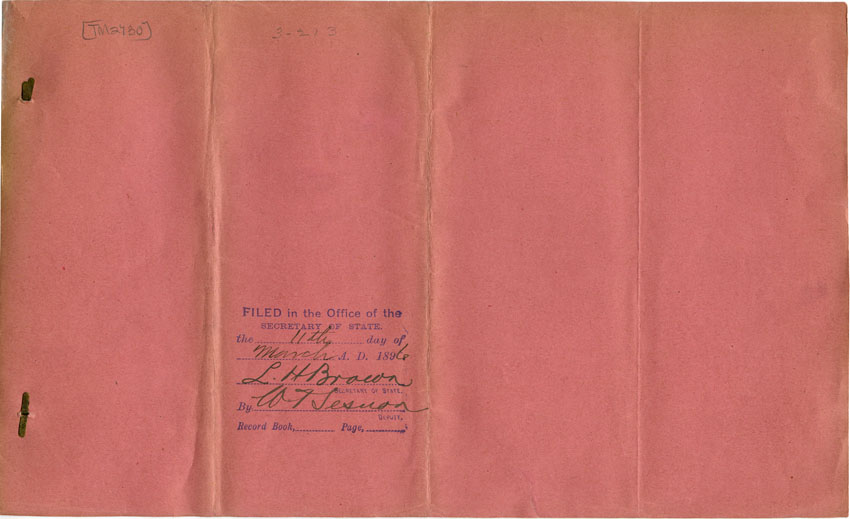 [TM2730]
3-213
FILED in the Office of the
SECRETARY OF STATE.
the 11th day of
March A. D. 1896
L. H Brown
SECRETARY OF STATE.
By W T Sesnon
DEPUTY.
Record Book, Page,